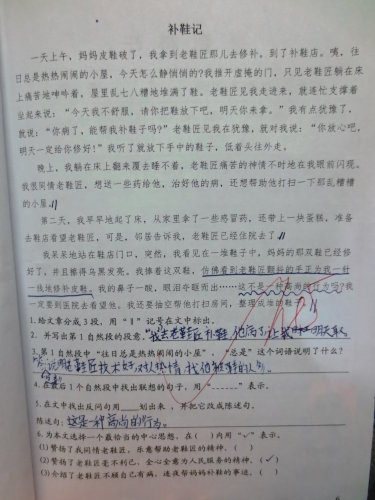 补鞋记
一天上午，妈妈皮鞋破了，我拿到老鞋匠那儿去修补。到了补鞋店。咦，往
日总是热热闹闹的小屋，今天怎么静悄悄的?我推开虚掩的门，只见老鞋匠躺在床
上痛苦地呻吟着，屋里乱七八糟地堆满了鞋。老鞋匠见我走进来，就连忙支撑着
坐起来说：“今天我不舒服，请你把鞋放下吧，明天你来拿。”我有点犹豫了，
就说：“你病了，能帮我补鞋子吗?”老鞋匠见我在犹豫，就对我说：“你放心吧，
明天一定给你修好！”我听了就放下手中的鞋子，低着头往外走。
晚上，我躺在床上翻来覆去睡不着，老鞋匠痛苦的神情不时地在我眼前闪现。
我很同情老鞋匠，想送一些药给他，治好他的病，还想帮助他打扫一下那乱糟糟
的小屋。
第二天，我早早地起了床，从家里拿了一些感冒药，还带上一块蛋糕，准备
去鞋店看望老鞋匠，可是，邻居告诉我，老鞋匠已经住院了
我呆呆地站在鞋店门口，突然，我看见在一堆鞋子中，妈妈的那双鞋已经修
好了，并且擦得乌黑发亮。我捧着这双鞋，仿佛看到老鞋匠颤抖的手正为我一针
一线地修补皮鞋，我的鼻子一酸，眼泪夺眶而出……这不是一种高尚的行为吗?我
一定要到医院去看望他。我还要抽空帮他打扫房间，整理成堆的鞋子
1.给文章分成3段，用“‖”记号在文中标出。
2. 并写出第1自然段的段意。我去老鞋匠补鞋，他病了，让我明天取
3.第1自然段中“往日总是热热闹闹的小屋”，“总是”这个词语说明了什么?
说明鞋匠技术好，对人热情
4.在最后1个自然段中找出联想的句子，用“______”表示。
5.在文中找出反问句用____划出来，并把它改成陈述句。
陈述句：这是一种高尚的行为。
6.为本文选择一个最恰当的中心思想，在（ ）内用“√”表示。
(1)赞扬了我同情老鞋匠，乐意帮助老鞋匠的精神。（ ）
(2)赞扬了老鞋匠毫不利己，全心全意为人民服务的精神。（√）
(3)介绍了老鞋匠不顾自己有病，连夜帮妈妈补鞋的事迹。（ ）